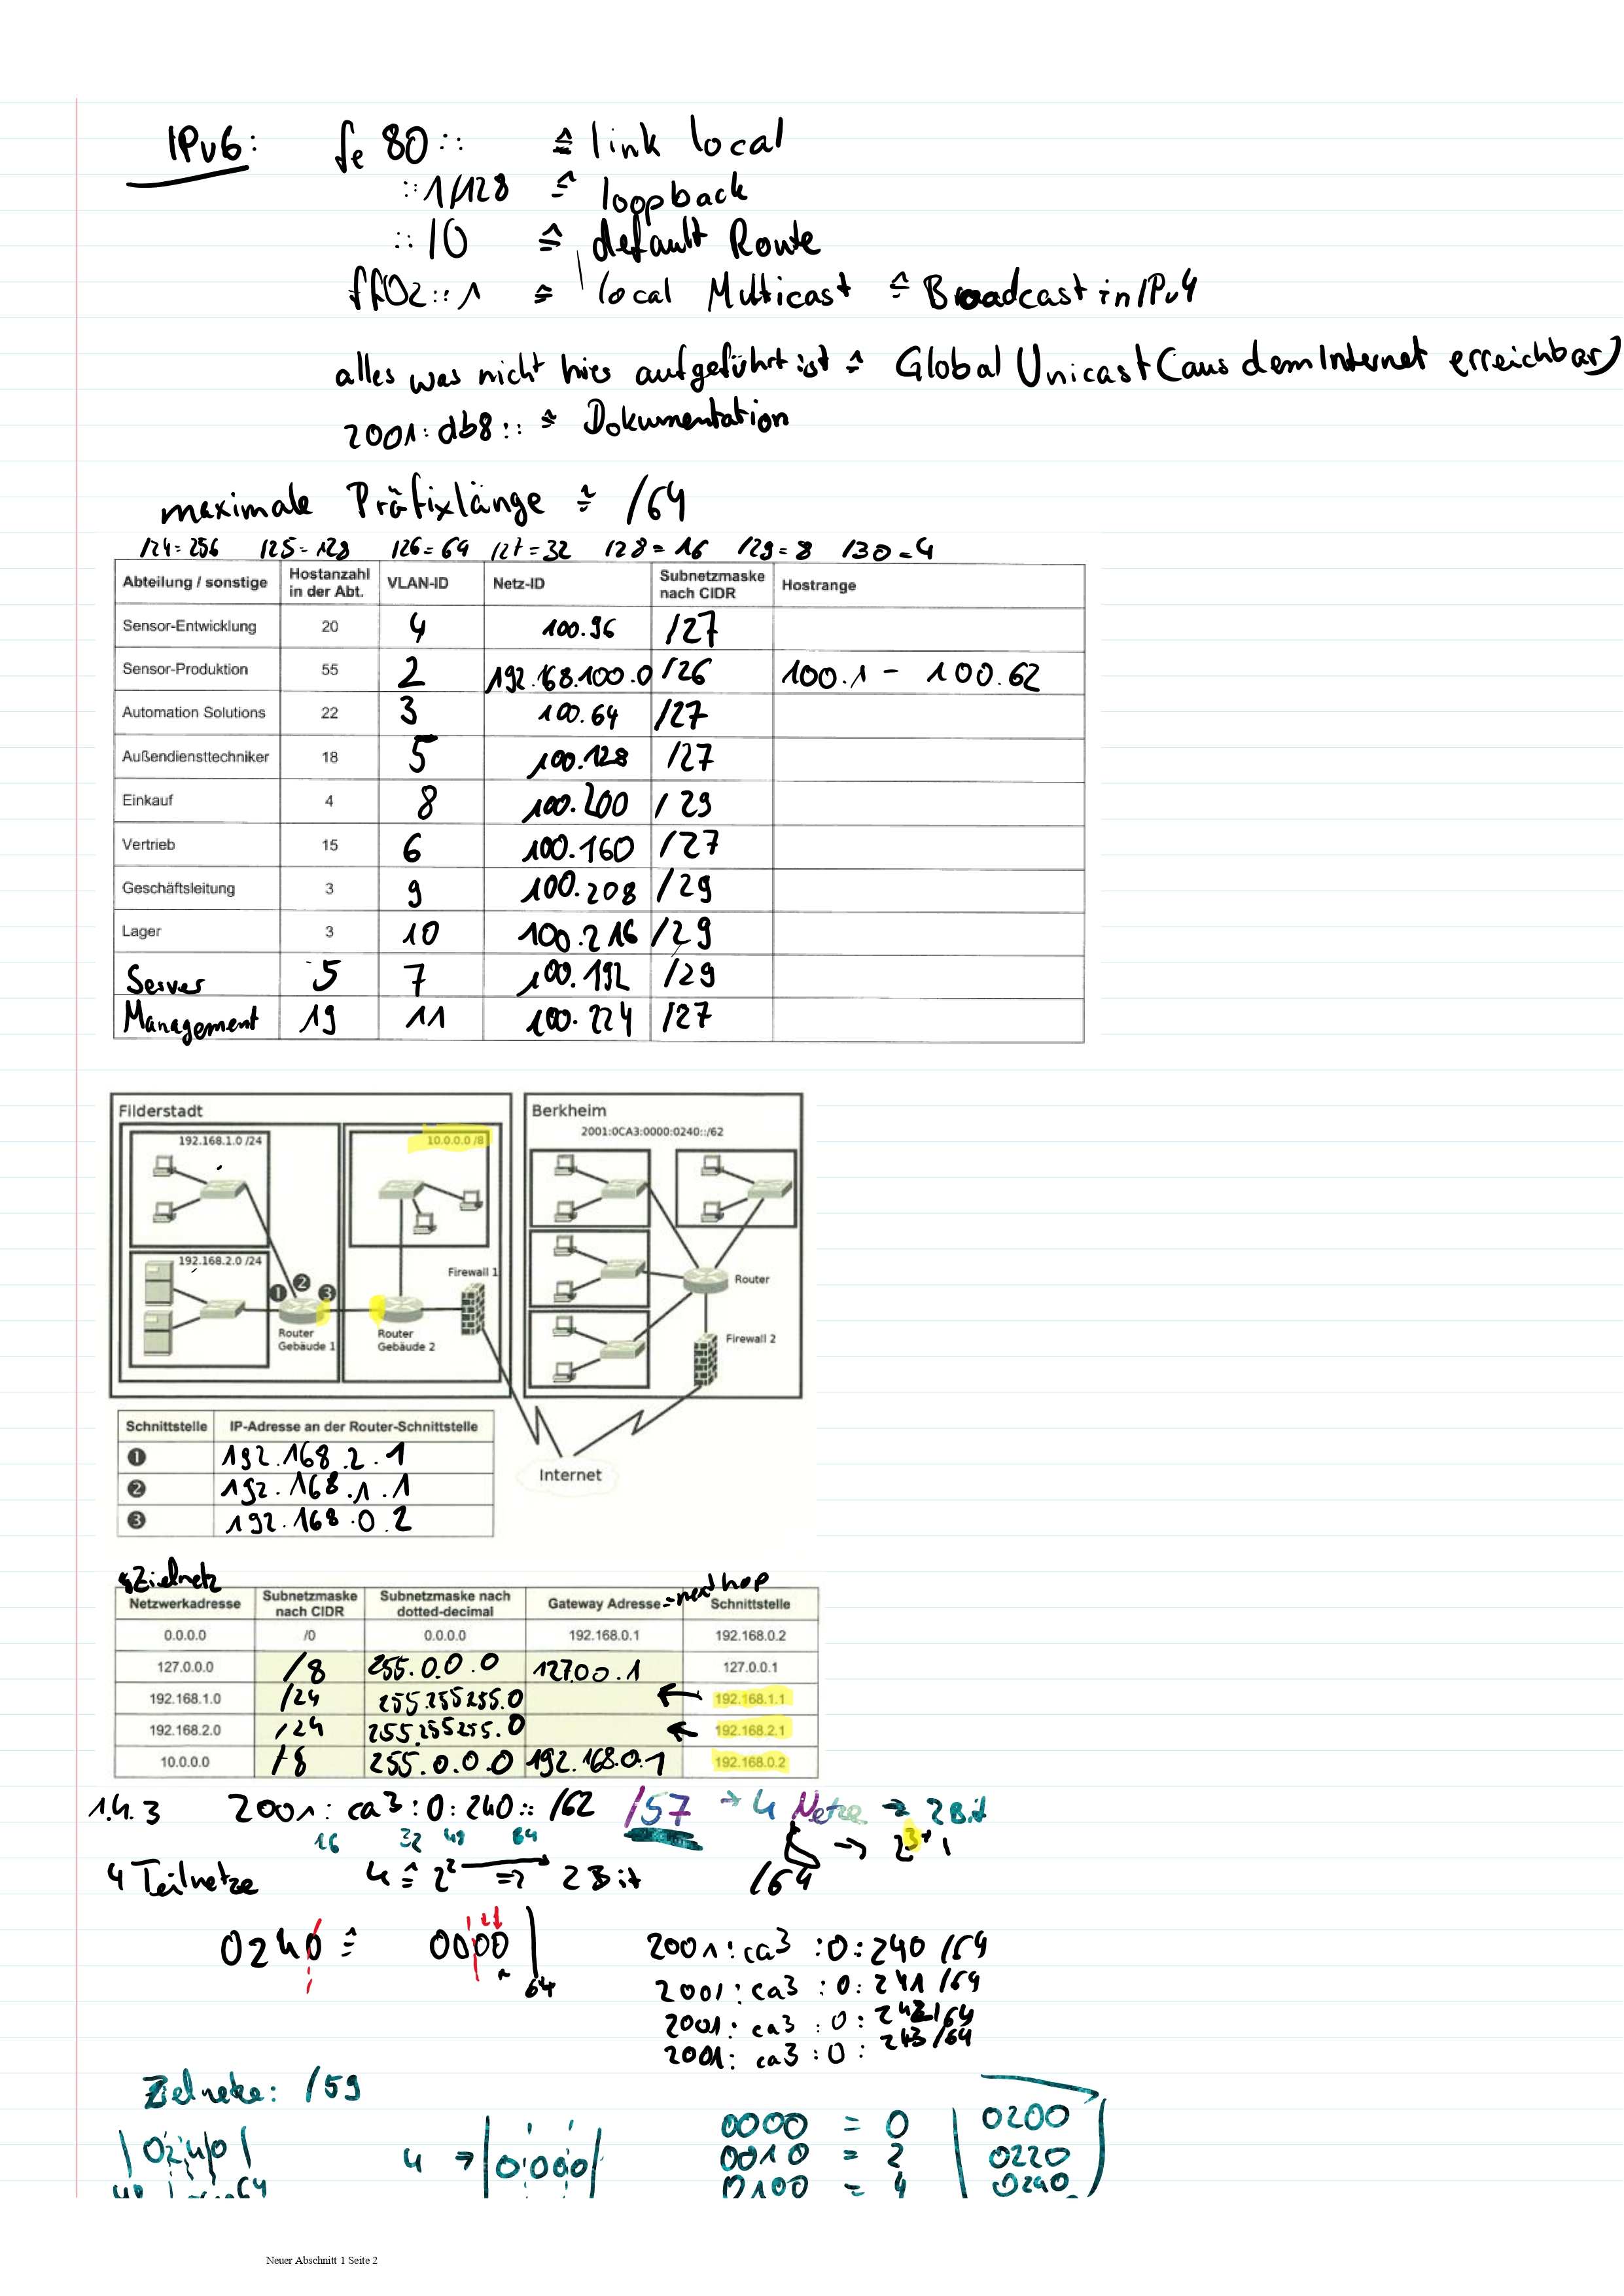 IPv6: fe 80 :: ≙ link local
::1/128 ≙ loopback
::/0 ≙ default Route
ff02::1 ≙ local Multicast ≙ Broadcast in IPv4
alles was nicht hier aufgeführt ist ≙ Global Unicast (aus dem Internet erreichbar)
2001:db8:: ≙ Dokumentation
maximale Präfixlänge ≙ /64
/24=256 /25=128 /26=64 /27=32 /28=16 /29=8 /30=4
Abteilung / sonstige Hostanzahl in der Abt. VLAN-ID Netz-ID Subnetzmaske nach CIDR Hostrange
Sensor-Entwicklung 20 4 100.96 /27
Sensor-Produktion 55 2 192.168.100.0 /26 100.1 - 100.62
Automation Solutions 22 3 100.64 /27
Außendiensttechniker 18 5 100.128 /27
Einkauf 4 8 100.200 /29
Vertrieb 15 6 100.160 /27
Geschäftsleitung 3 9 100.208 /29
Lager 3 10 100.216 /29
Server 5 7 100.192 /29
Management 19 11 100.224 /27
Filderstadt
192.168.1.0 /24
10.0.0.0 /8
192.168.2.0 /24
1 2 3
Firewall 1
Router Gebäude 1
Router Gebäude 2
Berkheim
2001:0CA3:0000:0240::/62
Router
Firewall 2
Internet
Schnittstelle IP-Adresse an der Router-Schnittstelle
1 192.168.2.1
2 192.168.1.1
3 192.168.0.2
Zielnetz
=next hop
Netzwerkadresse Subnetzmaske nach CIDR Subnetzmaske nach dotted-decimal Gateway Adresse Schnittstelle
0.0.0.0 /0 0.0.0.0 192.168.0.1 192.168.0.2
127.0.0.0 /8 255.0.0.0 127.0.0.1 127.0.0.1
192.168.1.0 /24 255.255.255.0 ← 192.168.1.1
192.168.2.0 /24 255.255.255.0 ← 192.168.2.1
10.0.0.0 /8 255.0.0.0 192.168.0.1 192.168.0.2
1.4.3 2001:ca3:0:240::/62 /57 → 4 Netze → 2 Bit
16 32 48 64
4 Teilnetze 4 ≙ 2² => 2 Bit /64
0240 ≙ 0000
64
2001:ca3:0:240 /64
2001:ca3:0:241 /64
2001:ca3:0:242/64
2001:ca3:0:243/64
Zielnetze: /59
0240
4 → 0000
0000 = 0
0010 = 2
0100 = 4
0200
0220
0240
Neuer Abschnitt 1 Seite 2